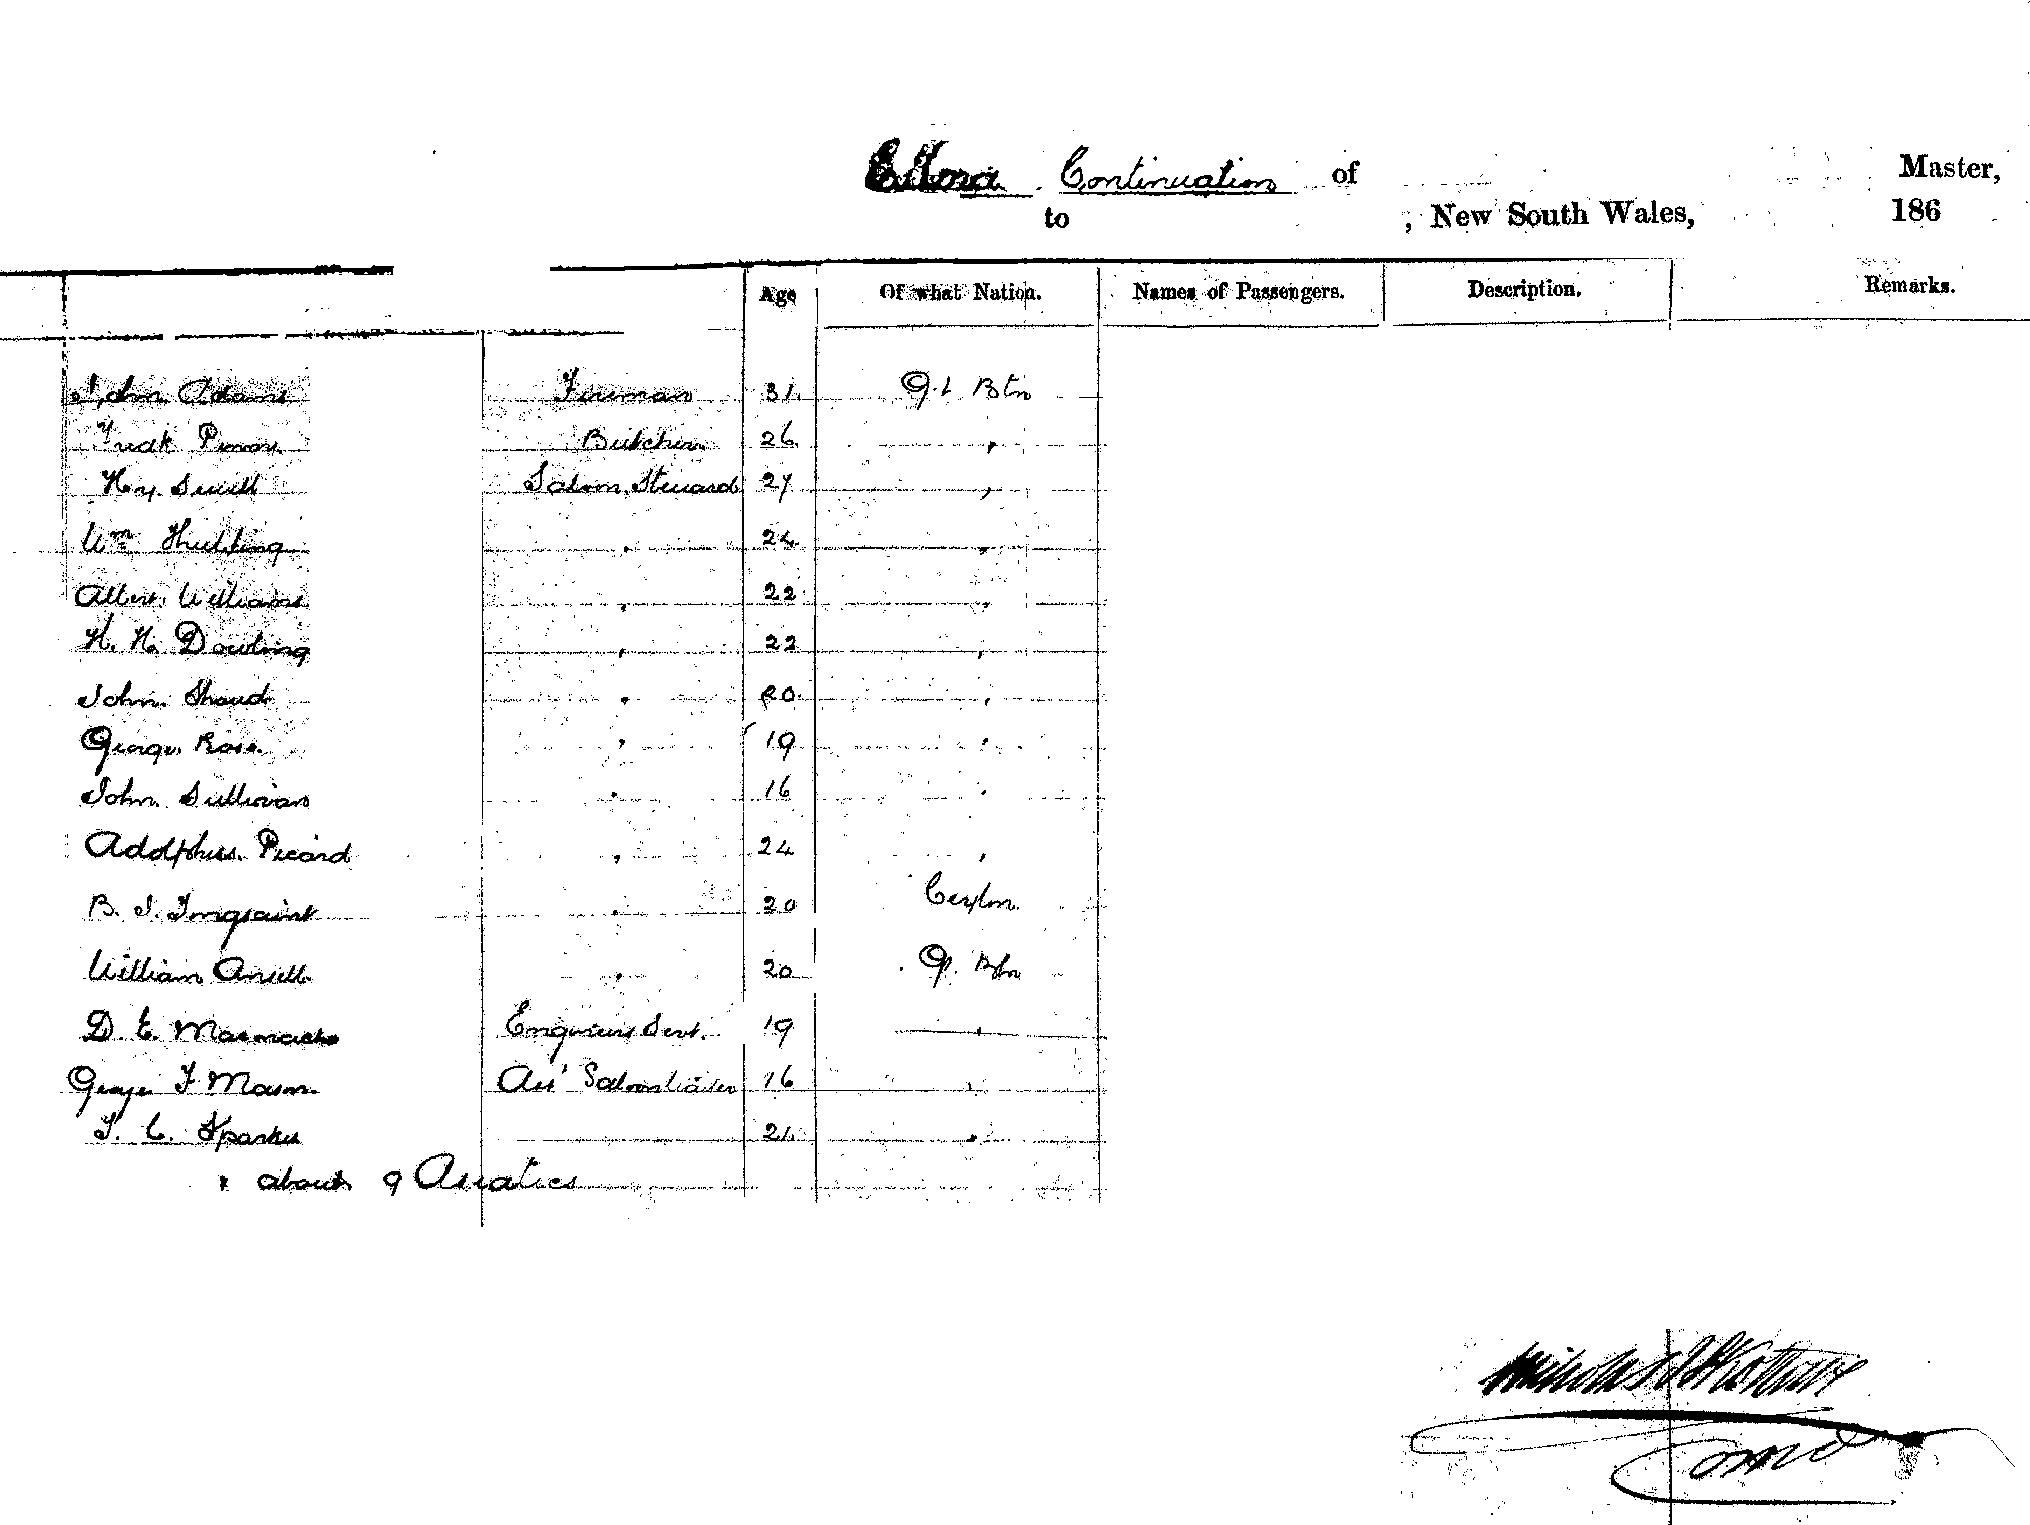 Ellora Continuation of Master,
to , New South Wales, 186
Age Of what Nation. Names of Passengers. Description. Remarks.
John Adams Fireman 31. Gt Btn
Butcher 26 "
Hy. Sewell Saloon Steward 27 "
Wm " 24 "
Albert Williams " 22 "
H. H. Dowling " 22 "
John " 20 "
George Rose " 19 "
John Sullivan " 16 "
Adolphus Picard " 24 "
B. " 20 Ceylon
William Ansell " 20 Gt. Btn
D. E. Engineers Servt. 19 "
George F Mason 16 "
C. Sparkes 21 "
about 9 Asiatics